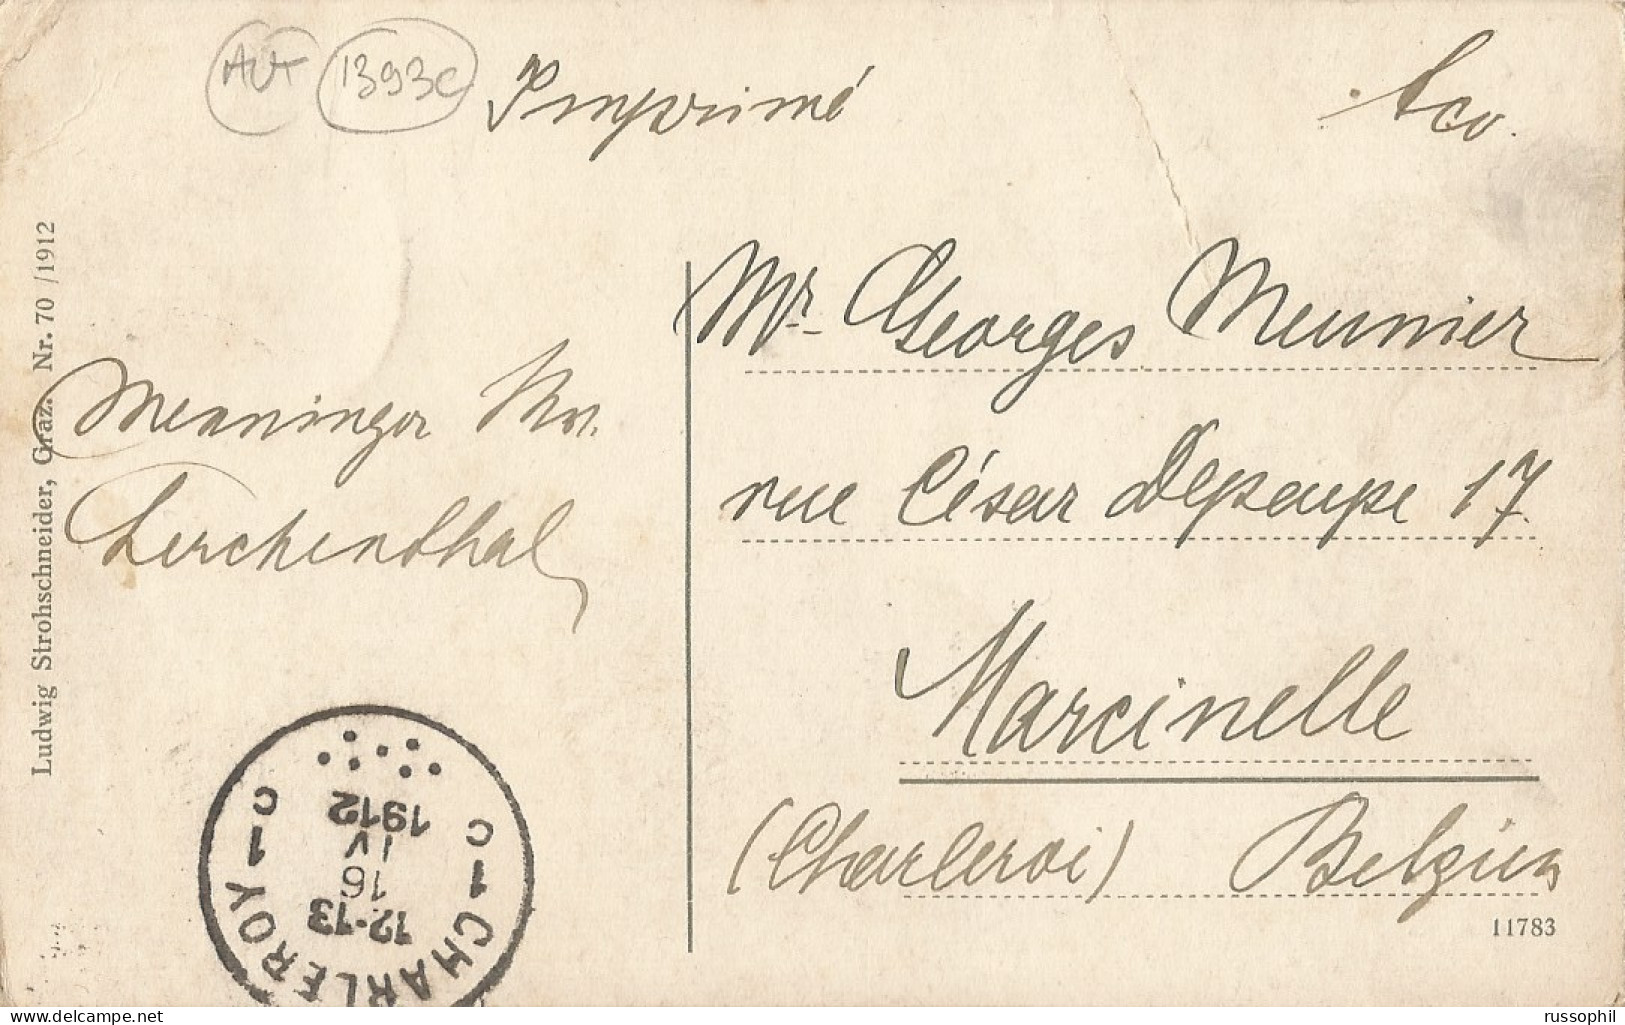 AUT 1393c
Imprimé
Ludwig Strohschneider, Graz. Nr. 70 /1912
Lerchenthal
Mr. Georges Meunier
rue César Depaepe 17
Marcinelle
(Charleroi) Belgien
11783
C 1 CHARLEROY 1 C
12-13
16
IV
1912
russophil
delcampe.net